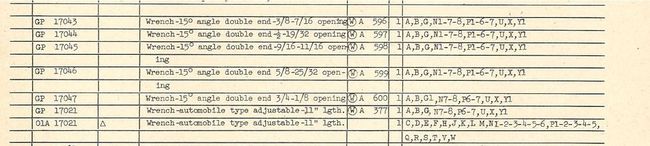 GP 17043 Wrench-15° angle double end-3/8-7/16 opening Ⓦ A 596 1 A,B,G,N1-7-8,P1-6-7,U,X,Y1
GP 17044 Wrench-15° angle double end-½-19/32 opening Ⓦ A 597 1 A,B,G,N1-7-8,P1-6-7,U,X,Y1
GP 17045 Wrench-15° angle double end-9/16-11/16 open- Ⓦ A 598 1 A,B,G,N1-7-8,P1-6-7,U,X,Y1
ing
GP 17046 Wrench-15° angle double end 5/8-25/32 open- Ⓦ A 599 1 A,B,G,N1-7-8,P1-6-7,U,X,Y1
ing
GP 17047 Wrench-15° angle double end 3/4-1/8 opening Ⓦ A 600 1 A,B,G1,N7-8,P6-7,U,X,Y1
GP 17021 Wrench-automobile type adjustable-11" lgth. Ⓦ A 377 1 A,B,G,N7-8,P6-7,U,X,Y1
01A 17021 Δ Wrench-automobile type adjustable-11" lgth. 1 C,D,E,F,H,J,K,L M,N1-2-3-4-5-6,P1-2-3-4-5,
Q,R,S,T,V,W